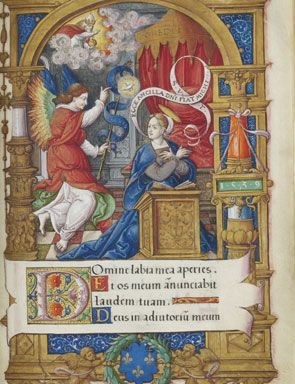 ECCE ANCILLA DNI FIAT
1539
Domine labia mea aperies.
Et os meum an̄unciabit
laudem tuam.
Deus in adiutoriū meum